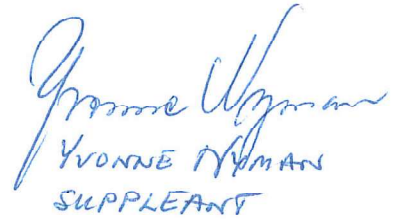 Yvonne Nyman
YVONNE NYMAN
SUPPLEANT